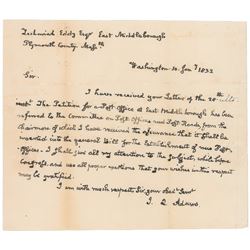 Zechariah Eddy Esqr East Middleborough
Plymouth County. Massts
Washington 30. Jany 1833
Sir.
I have received your Letter of the 20th ulto
The Petition for a Post Office at East Middleborough has been
referred to the Committee on Post Offices and Post Roads, from the
chairman of which I have received the assurance that it shall be
inserted in the general Bill for the Establishment of new Post
Offices. I shall give all my attention to the subject, while before
Congress and use all proper exertions that your wishes in this respect
may be gratified.
I am with much respect, Sir, your Obedt Servt
J. Q. Adams.